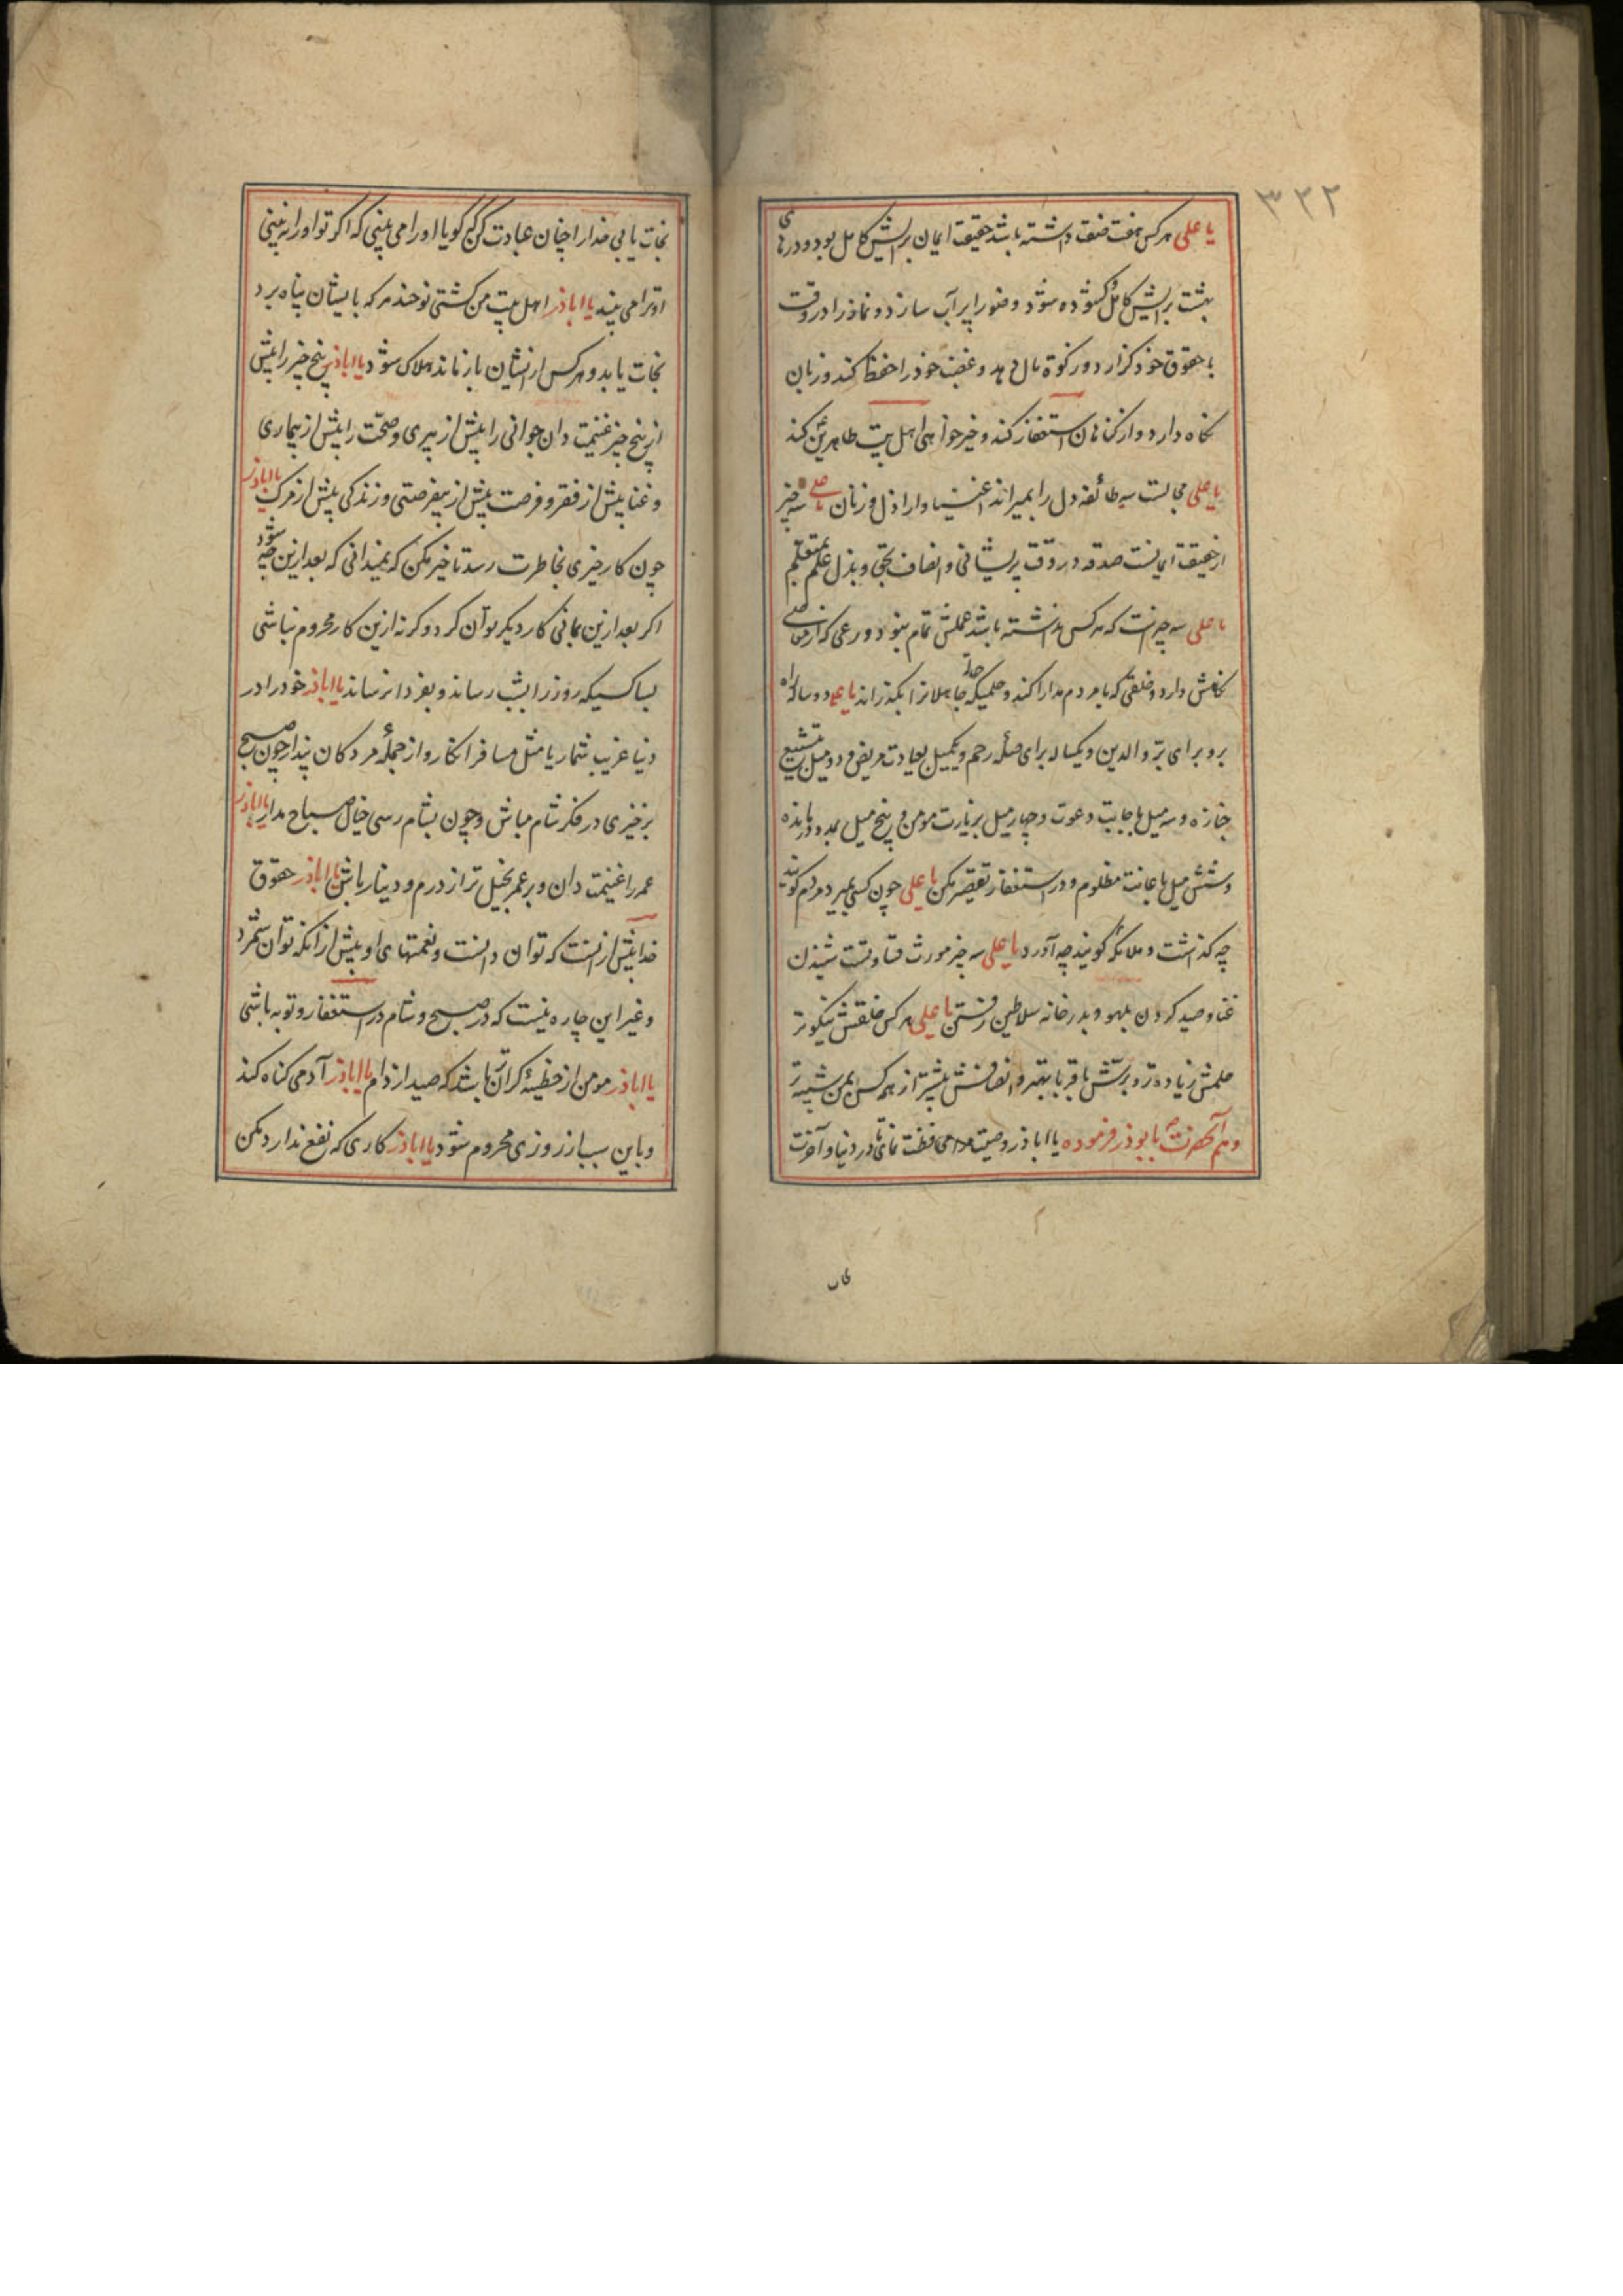 ۳۲۲
یا علی هر کس هفت صفت داشته باشد حقیقت ایمان برایش کامل بود و درهای
بهشت برایش کشوده شود وضو را پر آب سازد و نماز را در وقت
با حقوق خود کزارد و زکوة مال دهد و غضب خود را حفظ کند و زبان
نکاه دارد و از کناهان استغفار کند و خیر خواهی اهل بیت طاهرین کند
یا علی مجالست سه طائفه دل را بمیراند اغنیا و اراذل و زنان یا علی سه چیز
از حقیقت ایمانست صدقه در وقت پریشانی و انصاف بحق و بذل علم بمتعلم
یا علی سه چیزست که هر کس نداشته باشد عملش تمام نبود ورعی که از معاصی
نکاهش دارد و خلقی که با مردم مدارا کند و حلمیکه جهل جاهلانرا بکذراند یا علی دو ساله راه
برو برای بر والدین و یکساله برای صله رحم و یکمیل بعیادت مریض و دو میل بتشییع
جنازه و سه میل باجابت دعوت و چهار میل بزیارت مومن و پنج میل بمدد درمانده
و شش میل باعانت مظلوم و در استغفار تقصیر مکن یا علی چون کسی بمیرد مردم کویند
چه کذاشت و ملائکه کویند چه آورد یا علی سه چیز مورث قساوتست شنیدن
غنا و صید کردن بلهو و بدر خانه سلاطین رفتن یا علی هر کس خلقش نیکوتر
حلمش زیاده تر و برش باقربا بهتر و انصافش بیشتر از همه کس بمن شبیه تر
و هم آنحضرت بابوذر فرموده یا اباذر وصیت مرا محافظت نمای تا در دنیا و آخرت
نجات
نجات یابی خدا را چنان عبادت کن که کویا او را می بینی که اکر تو او را نه بینی
او ترا می بیند یا اباذر اهل بیت من کشتی نوحند هر که بایشان پناه برد
نجات یابد و هر کس از ایشان باز ماند هلاک شود یا اباذر پنج چیز را پیش
از پنج چیز غنیمت دان جوانی را پیش از پیری و صحت را پیش از بیماری
و غنا پیش از فقر و فرصت پیش از بیفرصتی و زندکی پیش از مرک یا اباذر
چون کار خیری بخاطرت رسد تاخیر مکن که نمیدانی که بعد ازین چه شود
اکر بعد ازین بمانی کار دیکر توان کرد و کرنه ازین کار محروم نباشی
بسا کسیکه روز را بشب رساند و بفردا نرساند یا اباذر خود را در
دنیا غریب شمار یا مثل مسافر انکار و از جمله مردکان پندار چون صبح
برخیزی در فکر شام مباش و چون بشام رسی خیال صباح مدار یا اباذر
عمر را غنیمت دان و بر عمر بخیل تر از درم و دینار باش یا اباذر حقوق
خدا بیش از انست که توان دانست و نعمتهای او بیش از آنکه توان شمرد
و غیر این چاره نیست که در صبح و شام در استغفار و توبه باشی
یا اباذر مومن از خطیئه کران باشد که صید از دام یا اباذر آدمی کناه کند
و باین سبب از روزی محروم شود یا اباذر کاری که نفع ندارد مکن